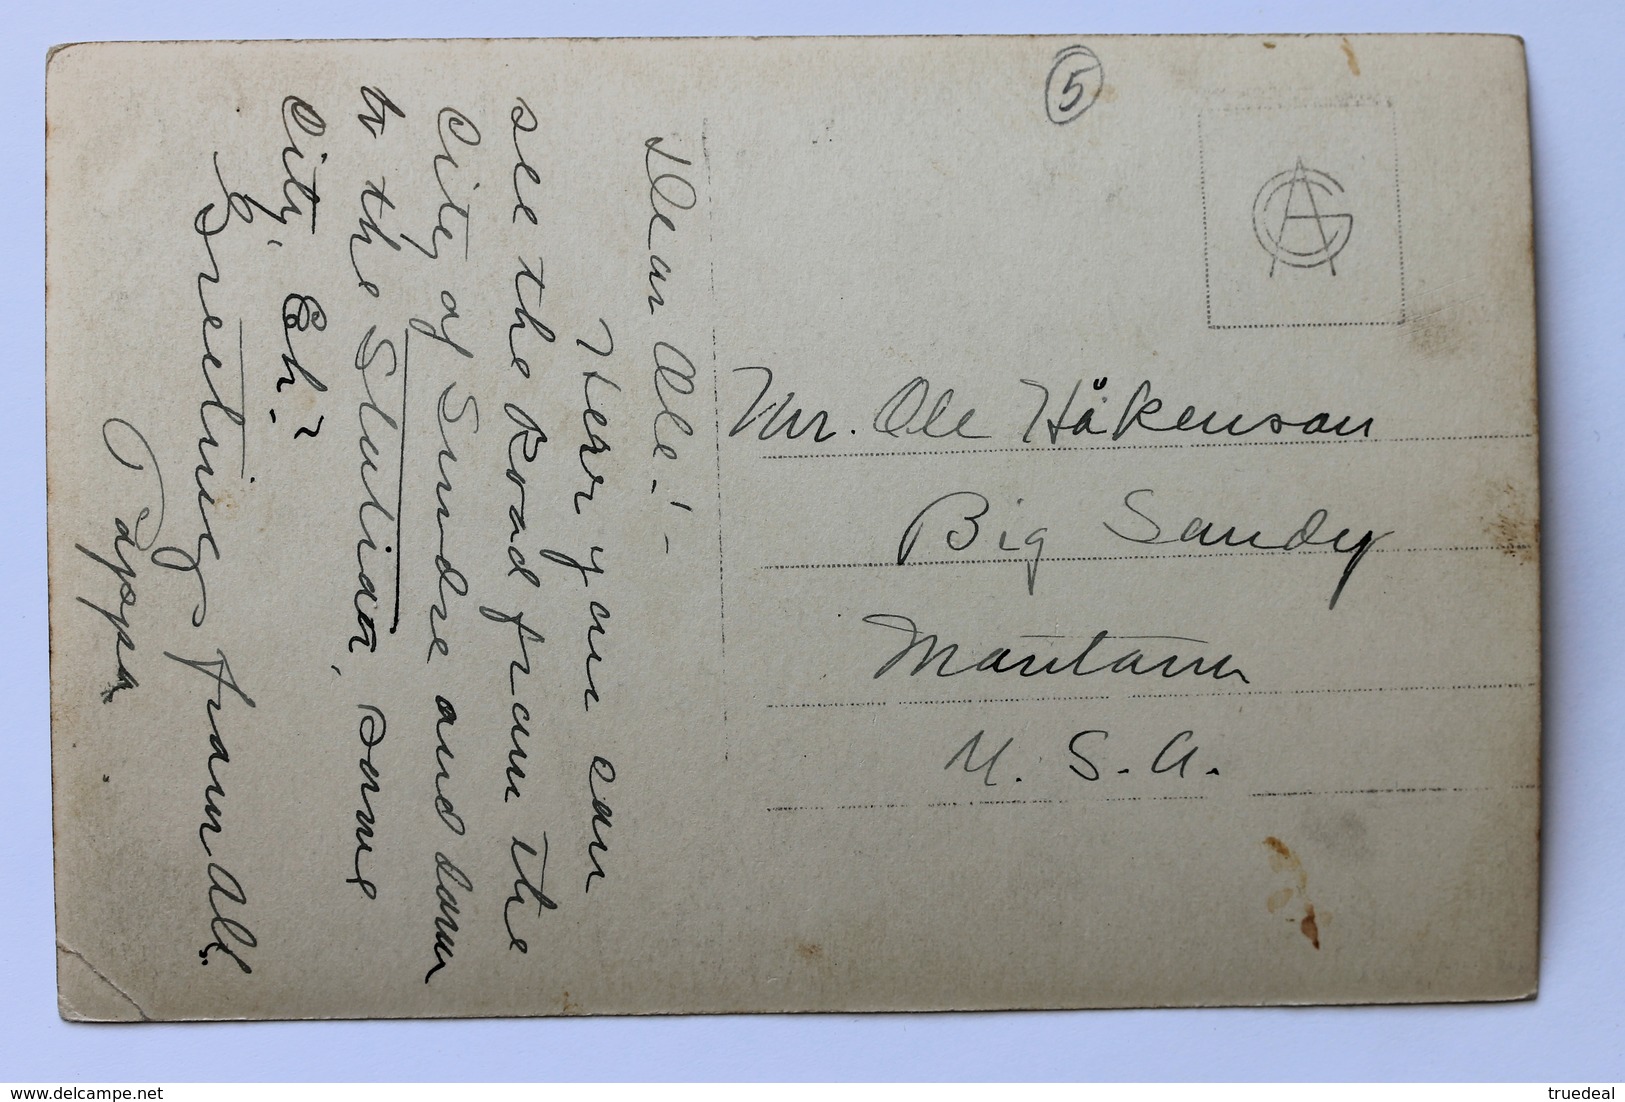 Dear Ole! -
Herr you can
see the Road fram the
City of Sundre and down
to the Stution, some
City, Eh?
Greeting fram All.
Pappa
5
AGC
Mr. Ole Håkenson
Big Sandy
Montana
U. S. A.
truedeal
delcampe.net